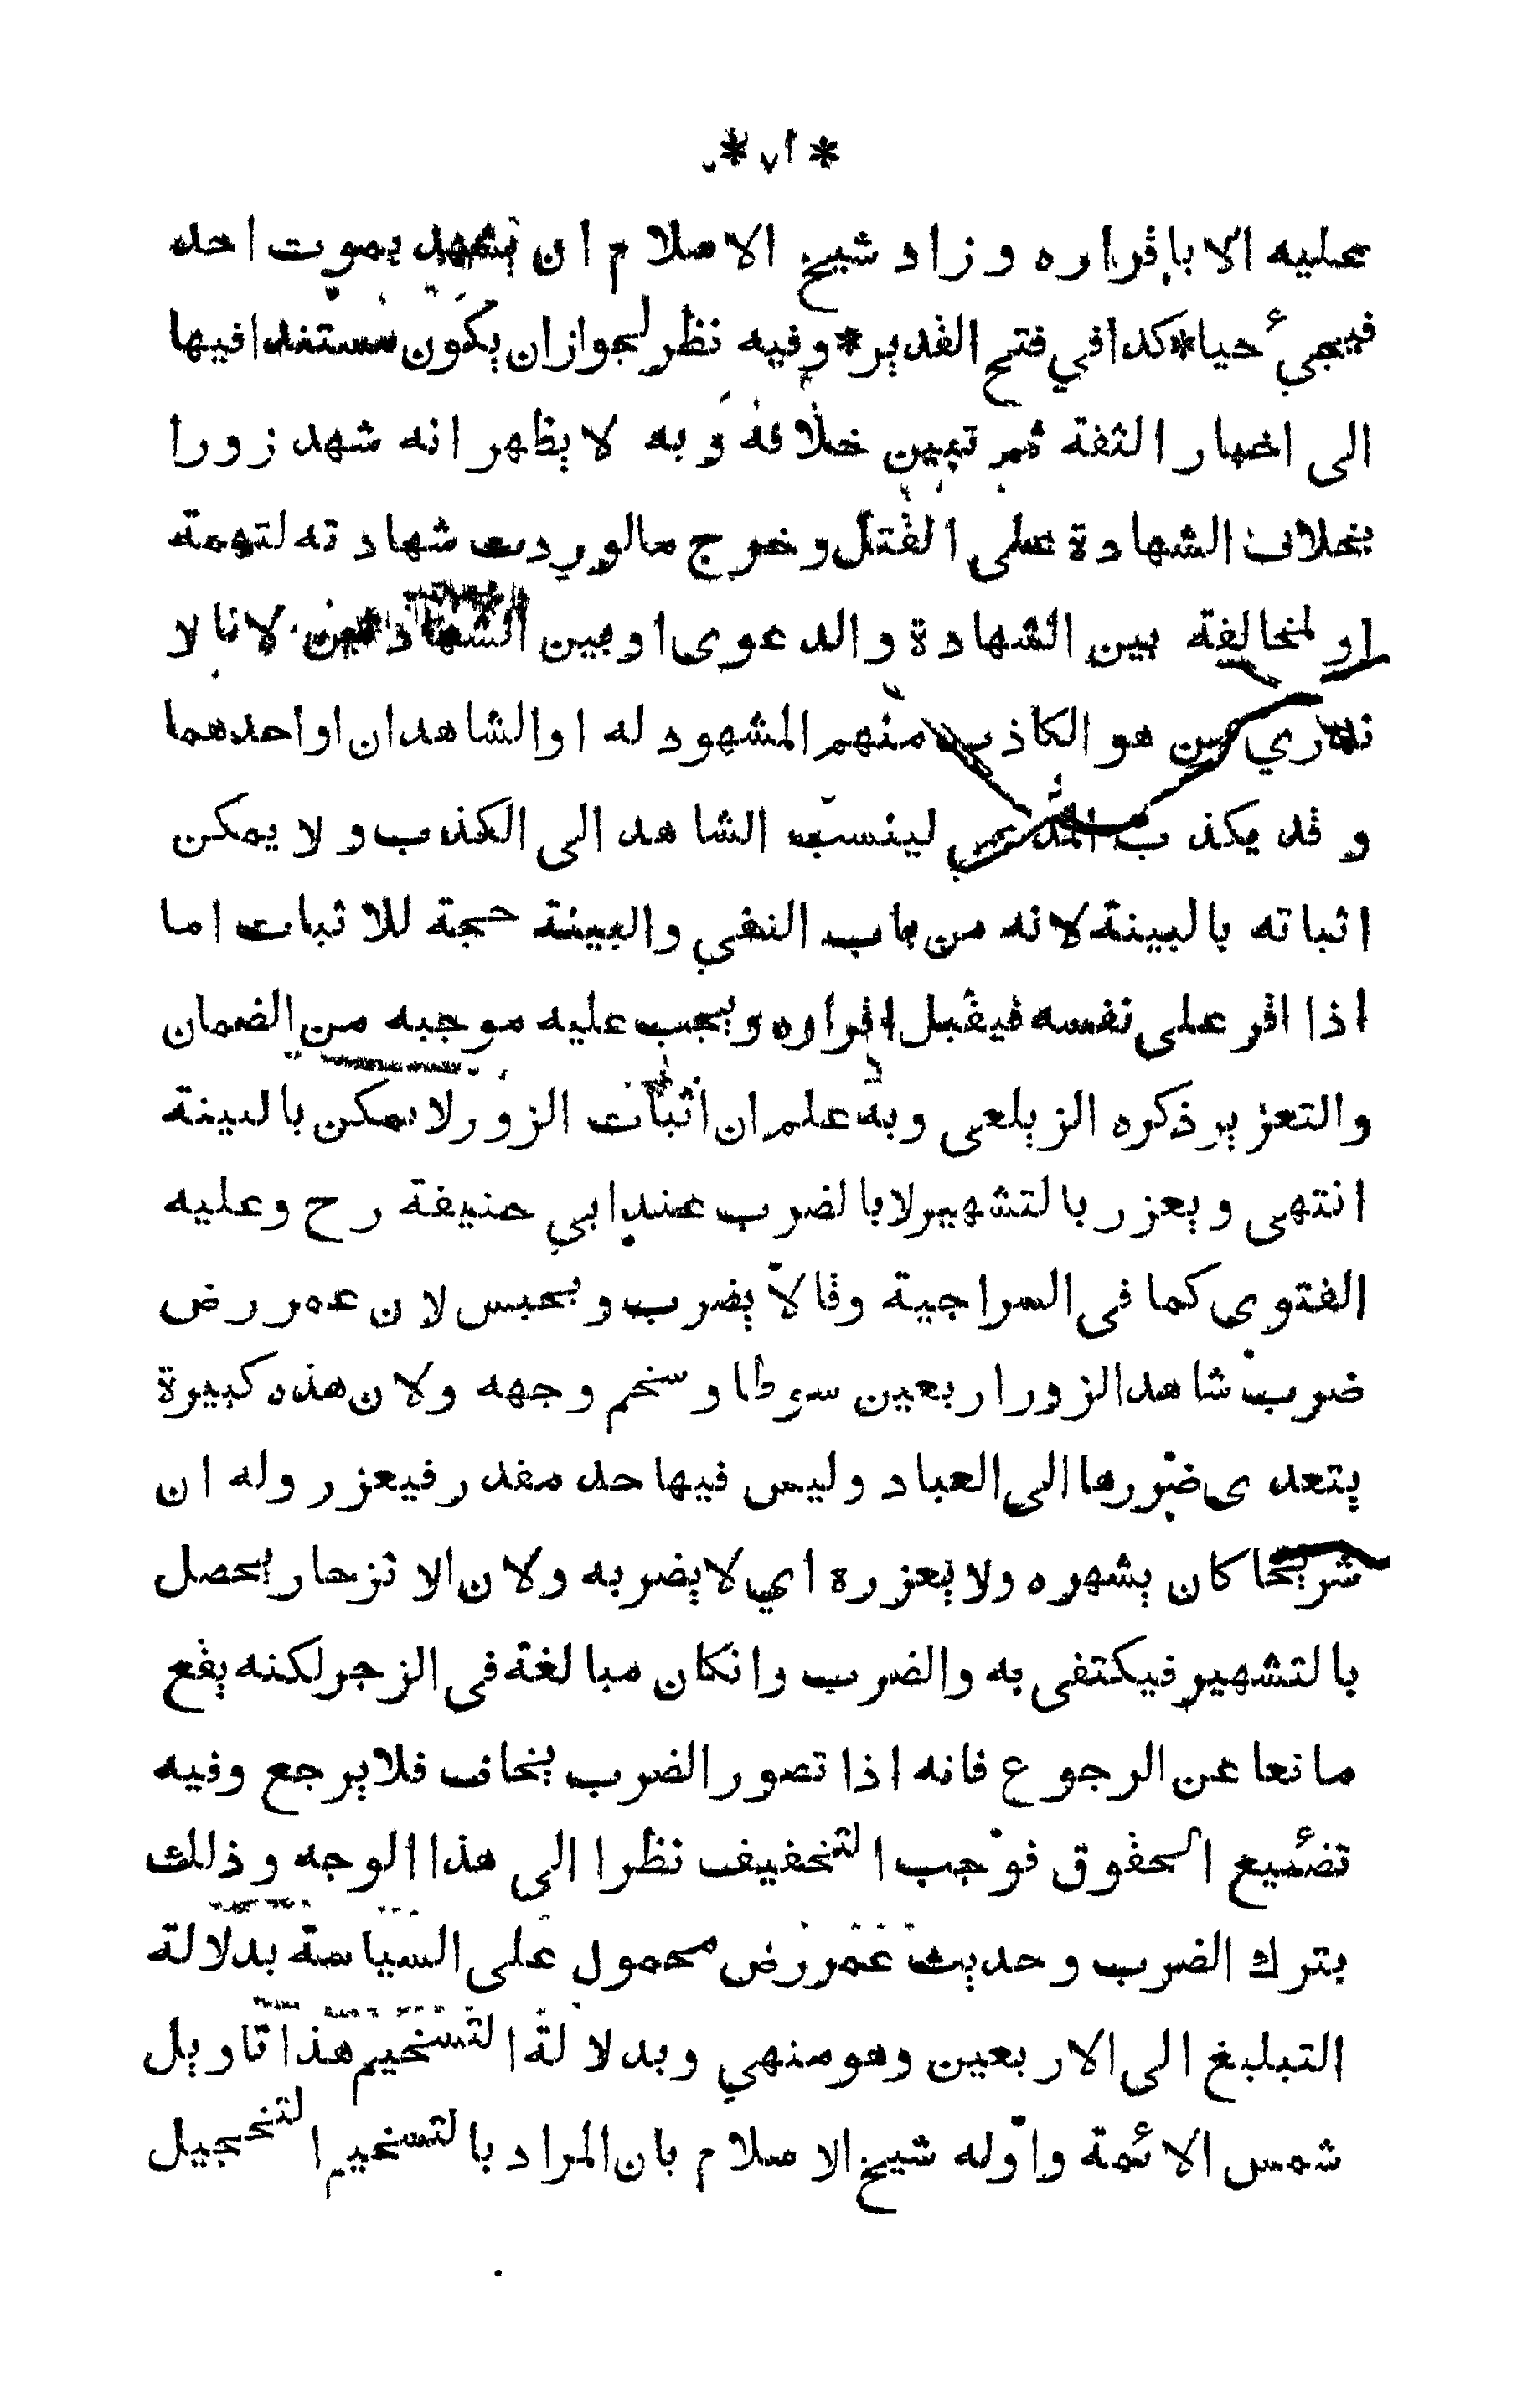 عليه الا باقراره وزاد شيخ الاسلام ان يشهد بموت احد
فيجيء حيا * كذا في فتح القدير * وفيه نظر لجواز ان يكون مستندا فيها
الى اخبار الثقة ثم تبين خلافه وبه لا يظهر انه شهد زورا
بخلاف الشهادة على القتل وخرج ما لو ردت شهادته لتهمة
او لمخالفة بين الشهادة والدعوى او بين الشهادتين لانا لا
ندري من هو الكاذب منهم المشهود له او الشاهدان او احدهما
وقد يكذب المدعي لينسب الشاهد الى الكذب ولا يمكن
اثباته بالبينة لانه من باب النفي والبينة حجة للاثبات اما
اذا اقر على نفسه فيقبل اقراره ويجب عليه موجبه من الضمان
والتعزير ذكره الزيلعى وبه علم ان اثبات الزور لا يمكن بالبينة
انتهى ويعزر بالتشهير لا بالضرب عند ابي حنيفة رح وعليه
الفتوى كما فى السراجية وقالا يضرب ويحبس لان عمر رض
ضرب شاهد الزور اربعين سوطا وسخم وجهه ولان هذه كبيرة
يتعدى ضررها الى العباد وليس فيها حد مقدر فيعزر وله ان
شريحا كان يشهره ولا يعزره اي لا يضربه ولان الانزجار يحصل
بالتشهير فيكتفى به والضرب وانكان مبالغة فى الزجر لكنه يقع
مانعا عن الرجوع فانه اذا تصور الضرب يخاف فلا يرجع وفيه
تضييع الحقوق فوجب التخفيف نظرا الى هذا الوجه وذلك
بترك الضرب وحديث عمر رض محمول على السياسة بدلالة
التبليغ الى الاربعين وهو منهي وبدلالة التسخيم هذا تاويل
شمس الائمة واوله شيخ الاسلام بان المراد بالتسخيم التخجيل